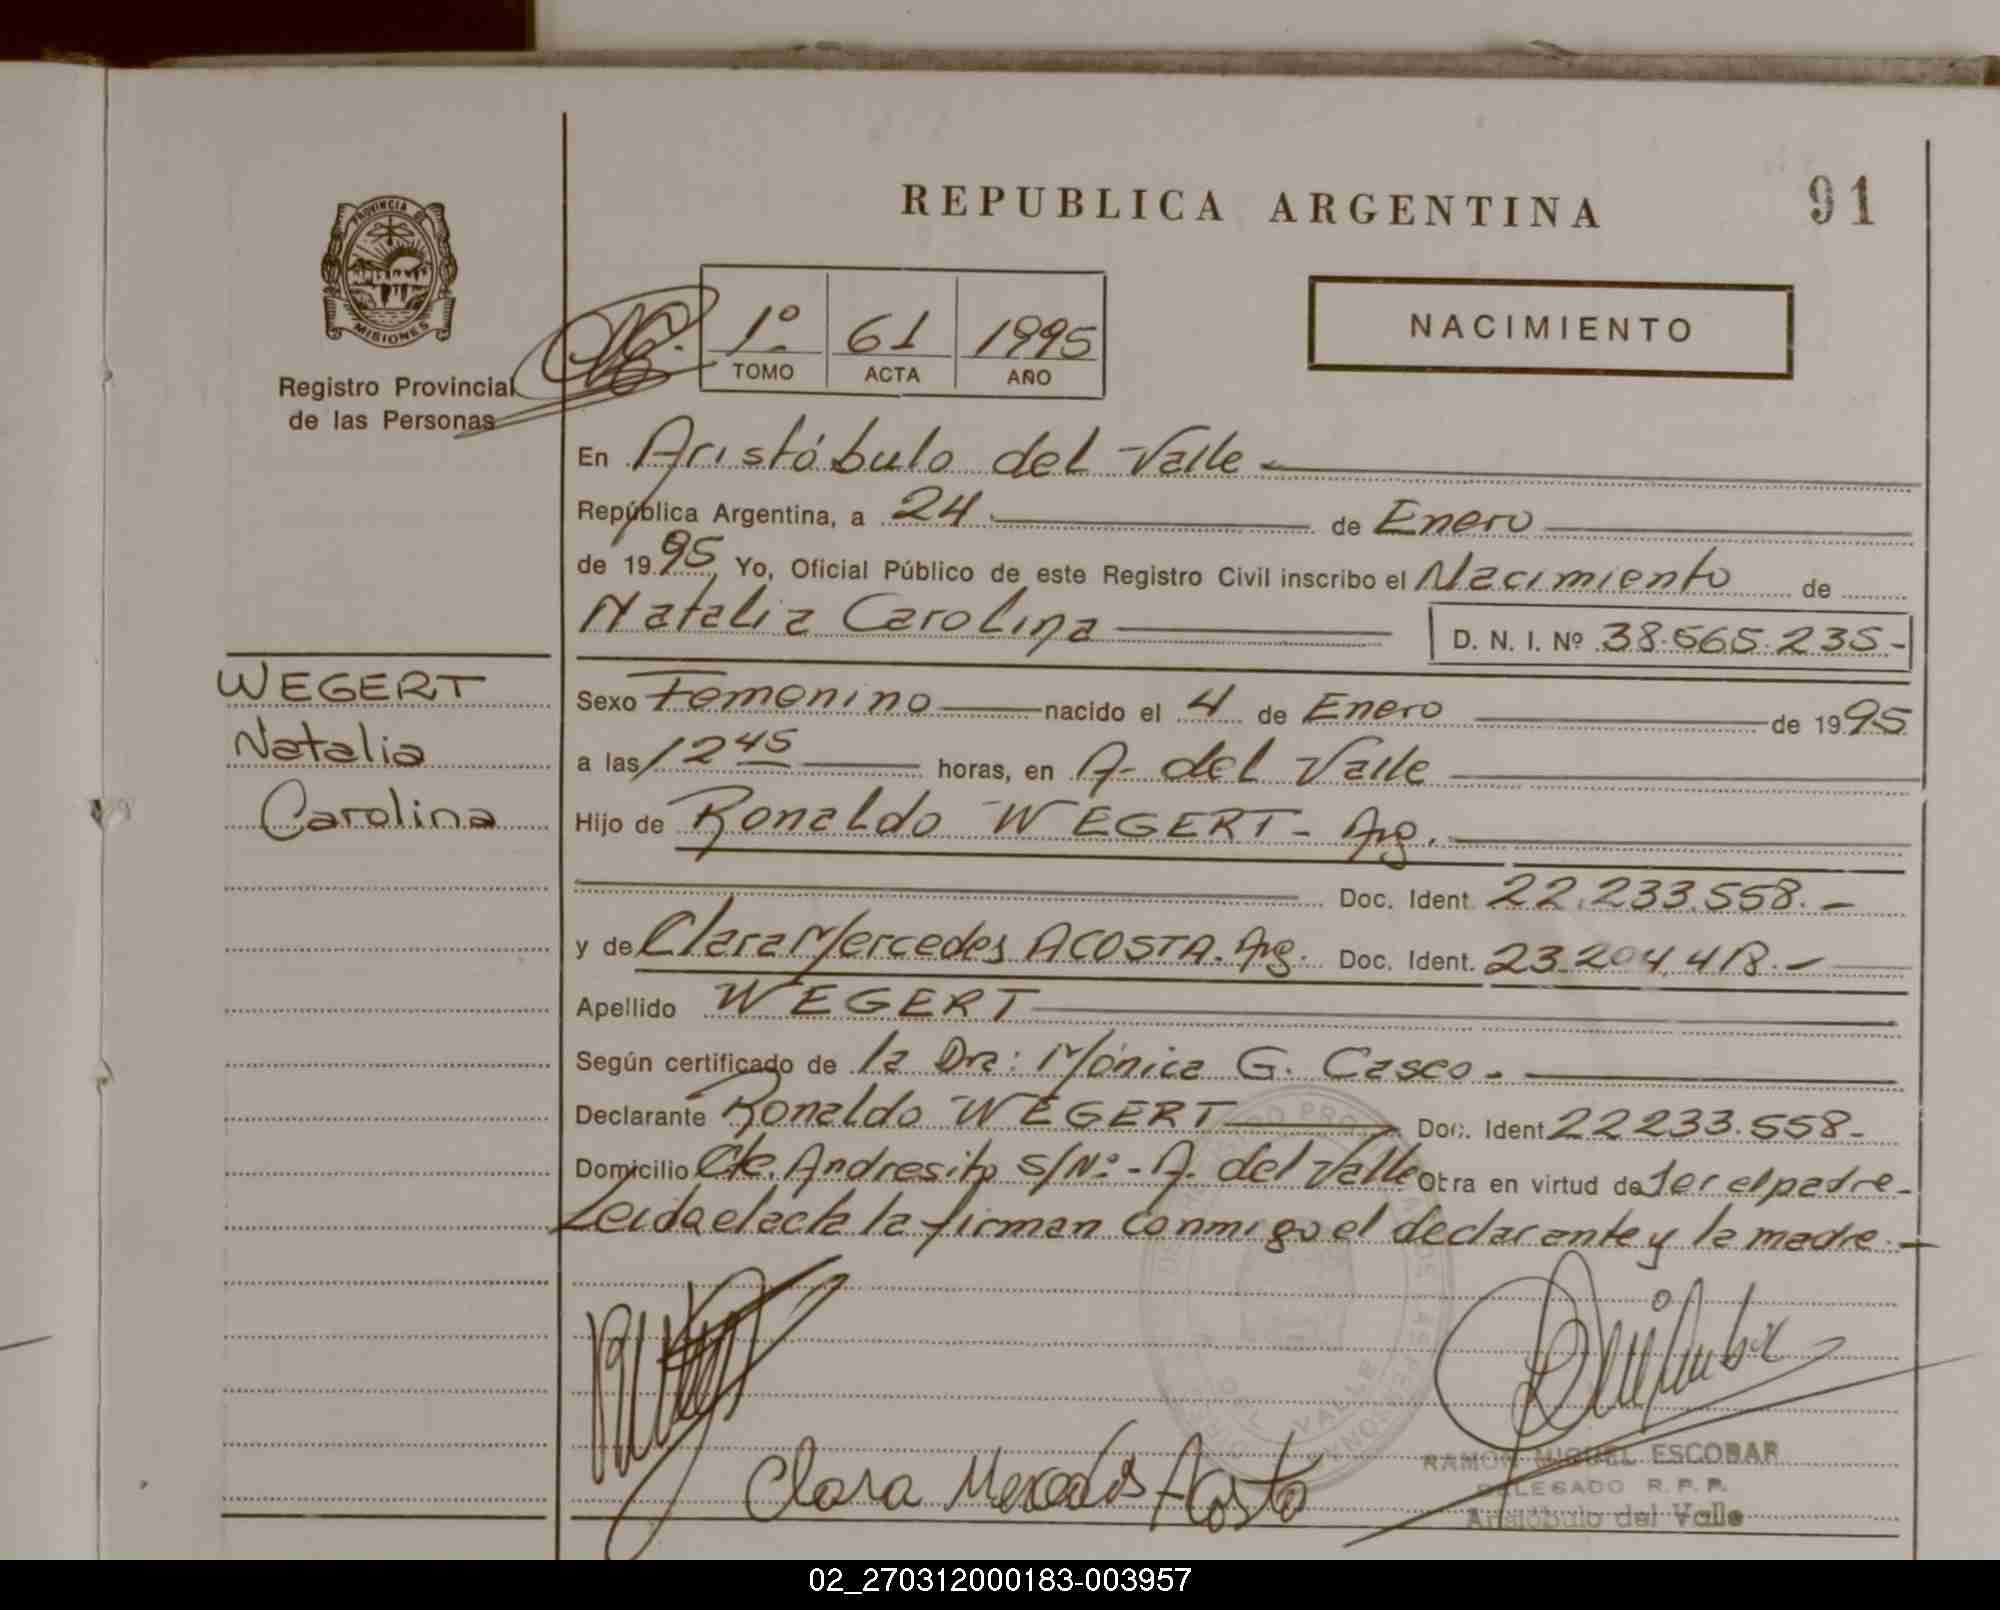 REPUBLICA ARGENTINA
91
PROVINCIA DE
MISIONES
Registro Provincial
de las Personas
1º 61 1995
TOMO ACTA AÑO
NACIMIENTO
En Aristóbulo del Valle
República Argentina, a 24 de Enero
de 1995 Yo, Oficial Público de este Registro Civil inscribo el Nacimiento de
Natalia Carolina D. N. I. Nº 38.565.235-
WEGERT
Natalia
Carolina
Sexo Femenino nacido el 4 de Enero de 1995
a las 12 45 horas, en A- del Valle
Hijo de Ronaldo WEGERT- Arg.
Doc. Ident. 22.233.558.-
y de Clara Mercedes ACOSTA. Arg. Doc. Ident. 23.204.418.-
Apellido WEGERT
Según certificado de la Dra: Mónica G. Casco.
Declarante Ronaldo WEGERT Doc. Ident 22233.558-
Domicilio Cte. Andresito s/Nº.- A. del Valle Obra en virtud de ser el padre-
Leida el acta la firman conmigo el declarante y la madre.-
VALLE
Clara Mercedes Acosta
RAMON MIGUEL ESCOBAR
DELEGADO R. P. P.
Aristóbulo del Valle
02_270312000183-003957